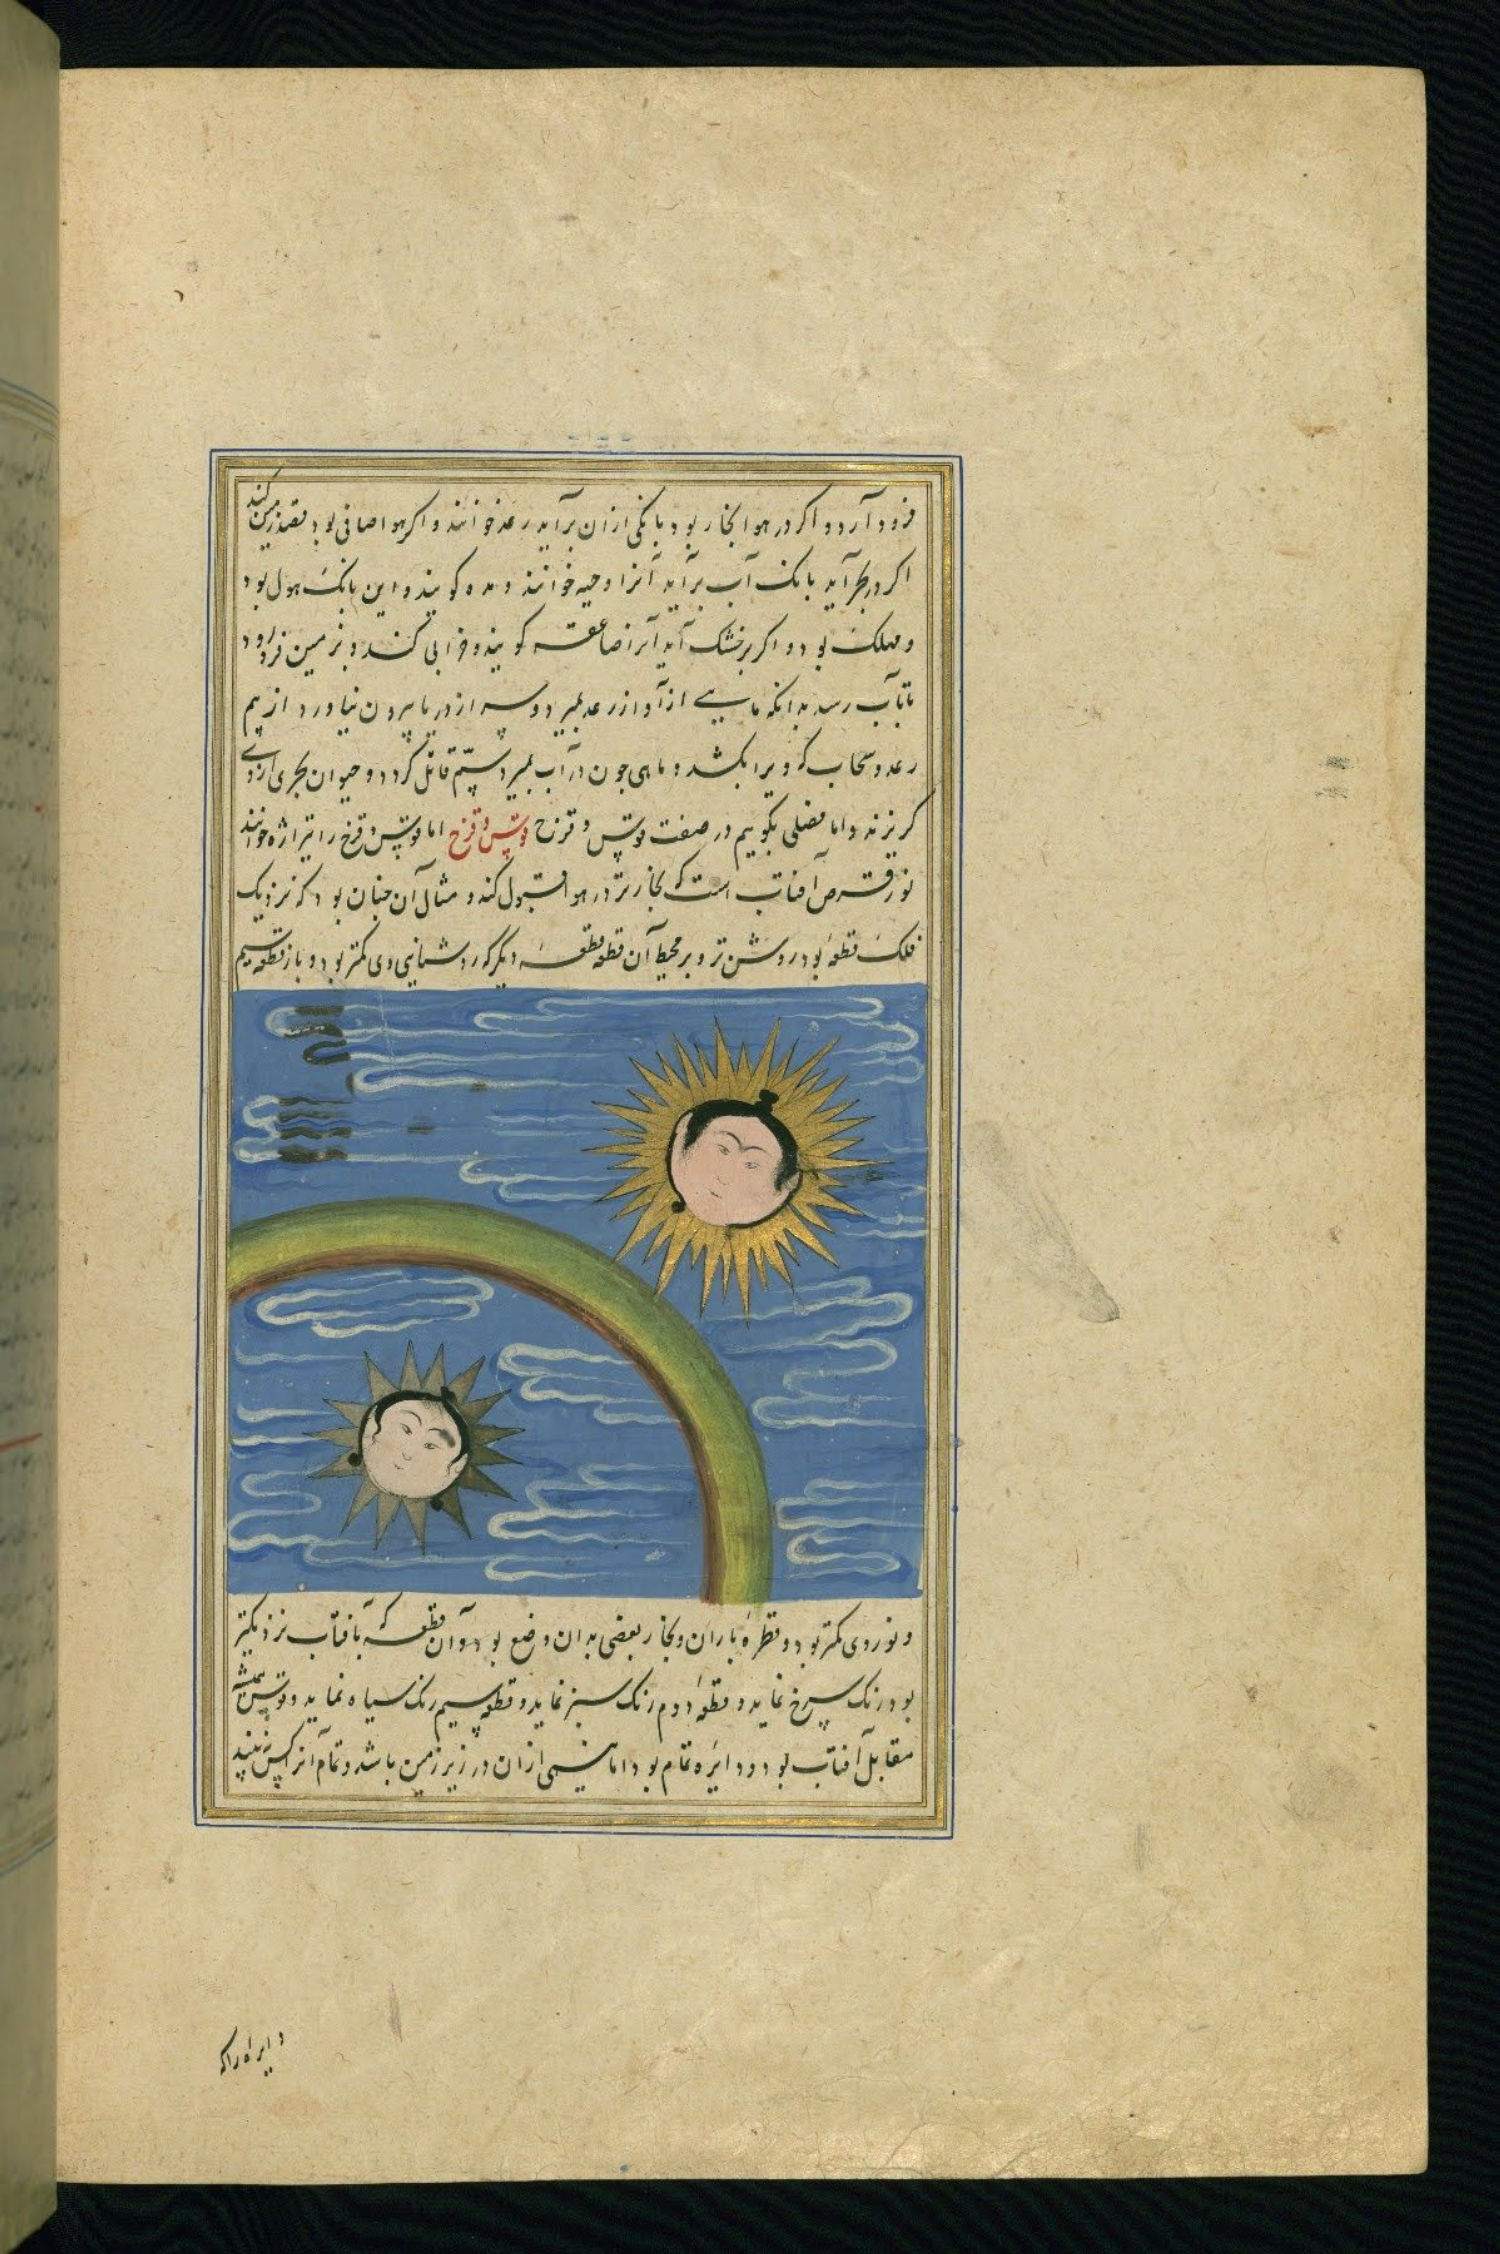 فرود آرد و اکر در هوا بخار بود بانکی ازان برآید رعد خوانند و اکر هوا صافی بود قصد زمین کند
اکر در بحر آید بانک آب برآید آنرا خوانند و کویند و این بانک هول بود
و مهلک بود و اکر بر خشک آید آنرا صاعقه کویند و خرابی کند و بزمین فرو رود
تا بآب رسد بدانکه ماهیی از آواز رعد بمیرد و سر از دریا بیرون نیاورد از بیم
رعد و سحاب که ویرا بکشد و ماهی چون در آب بمیرد سم قاتل کردد و حیوان بحری از وی
کریزند و اما فصلی بکوییم در صفت قوس و قزح قوس و قزح اما قوس و قزح را خوانند
نور قرص آفتاب است که بخار تر در هوا قبول کند و مثال آن چنان بود که نزدیک
فلک قطعهٔ بود روشن تر و بر محیط آن قطعه قطعهٔ دیکر که روشنایی وی کمتر بود و باز قطعه سیم
و نور وی کمتر بود و قطرهٔ باران و بخار بعضی بدان وضع بود و آن قطعه که بآفتاب نزدیکتر
بود رنک سرخ نماید و قطعهٔ دوم رنک سبز نماید و قطعه سیم رنک سیاه نماید و قوس همیشه
مقابل آفتاب بود و دایره تمام بود اما نیمی ازان در زیر زمین باشد و تمام آنرا کس نبیند
دایره را که